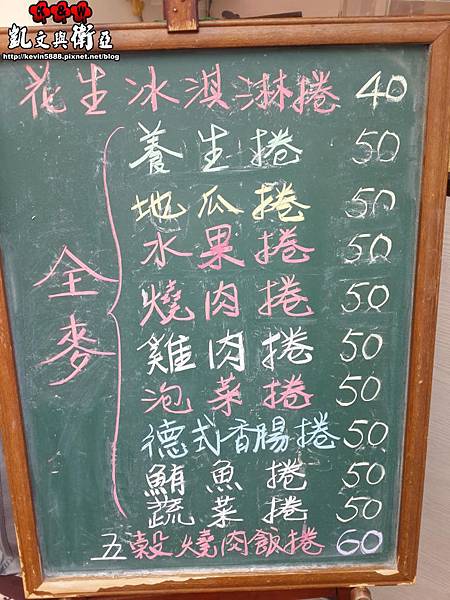 凱文與衛亞
http://kevin5888.pixnet.net/blog
花生冰淇淋捲 40
全麥
養生捲 50
地瓜捲 50
水果捲 50
燒肉捲 50
雞肉捲 50
泡菜捲 50
德式香腸捲 50
鮪魚捲 50
蔬菜捲 50
五穀燒肉飯捲 60